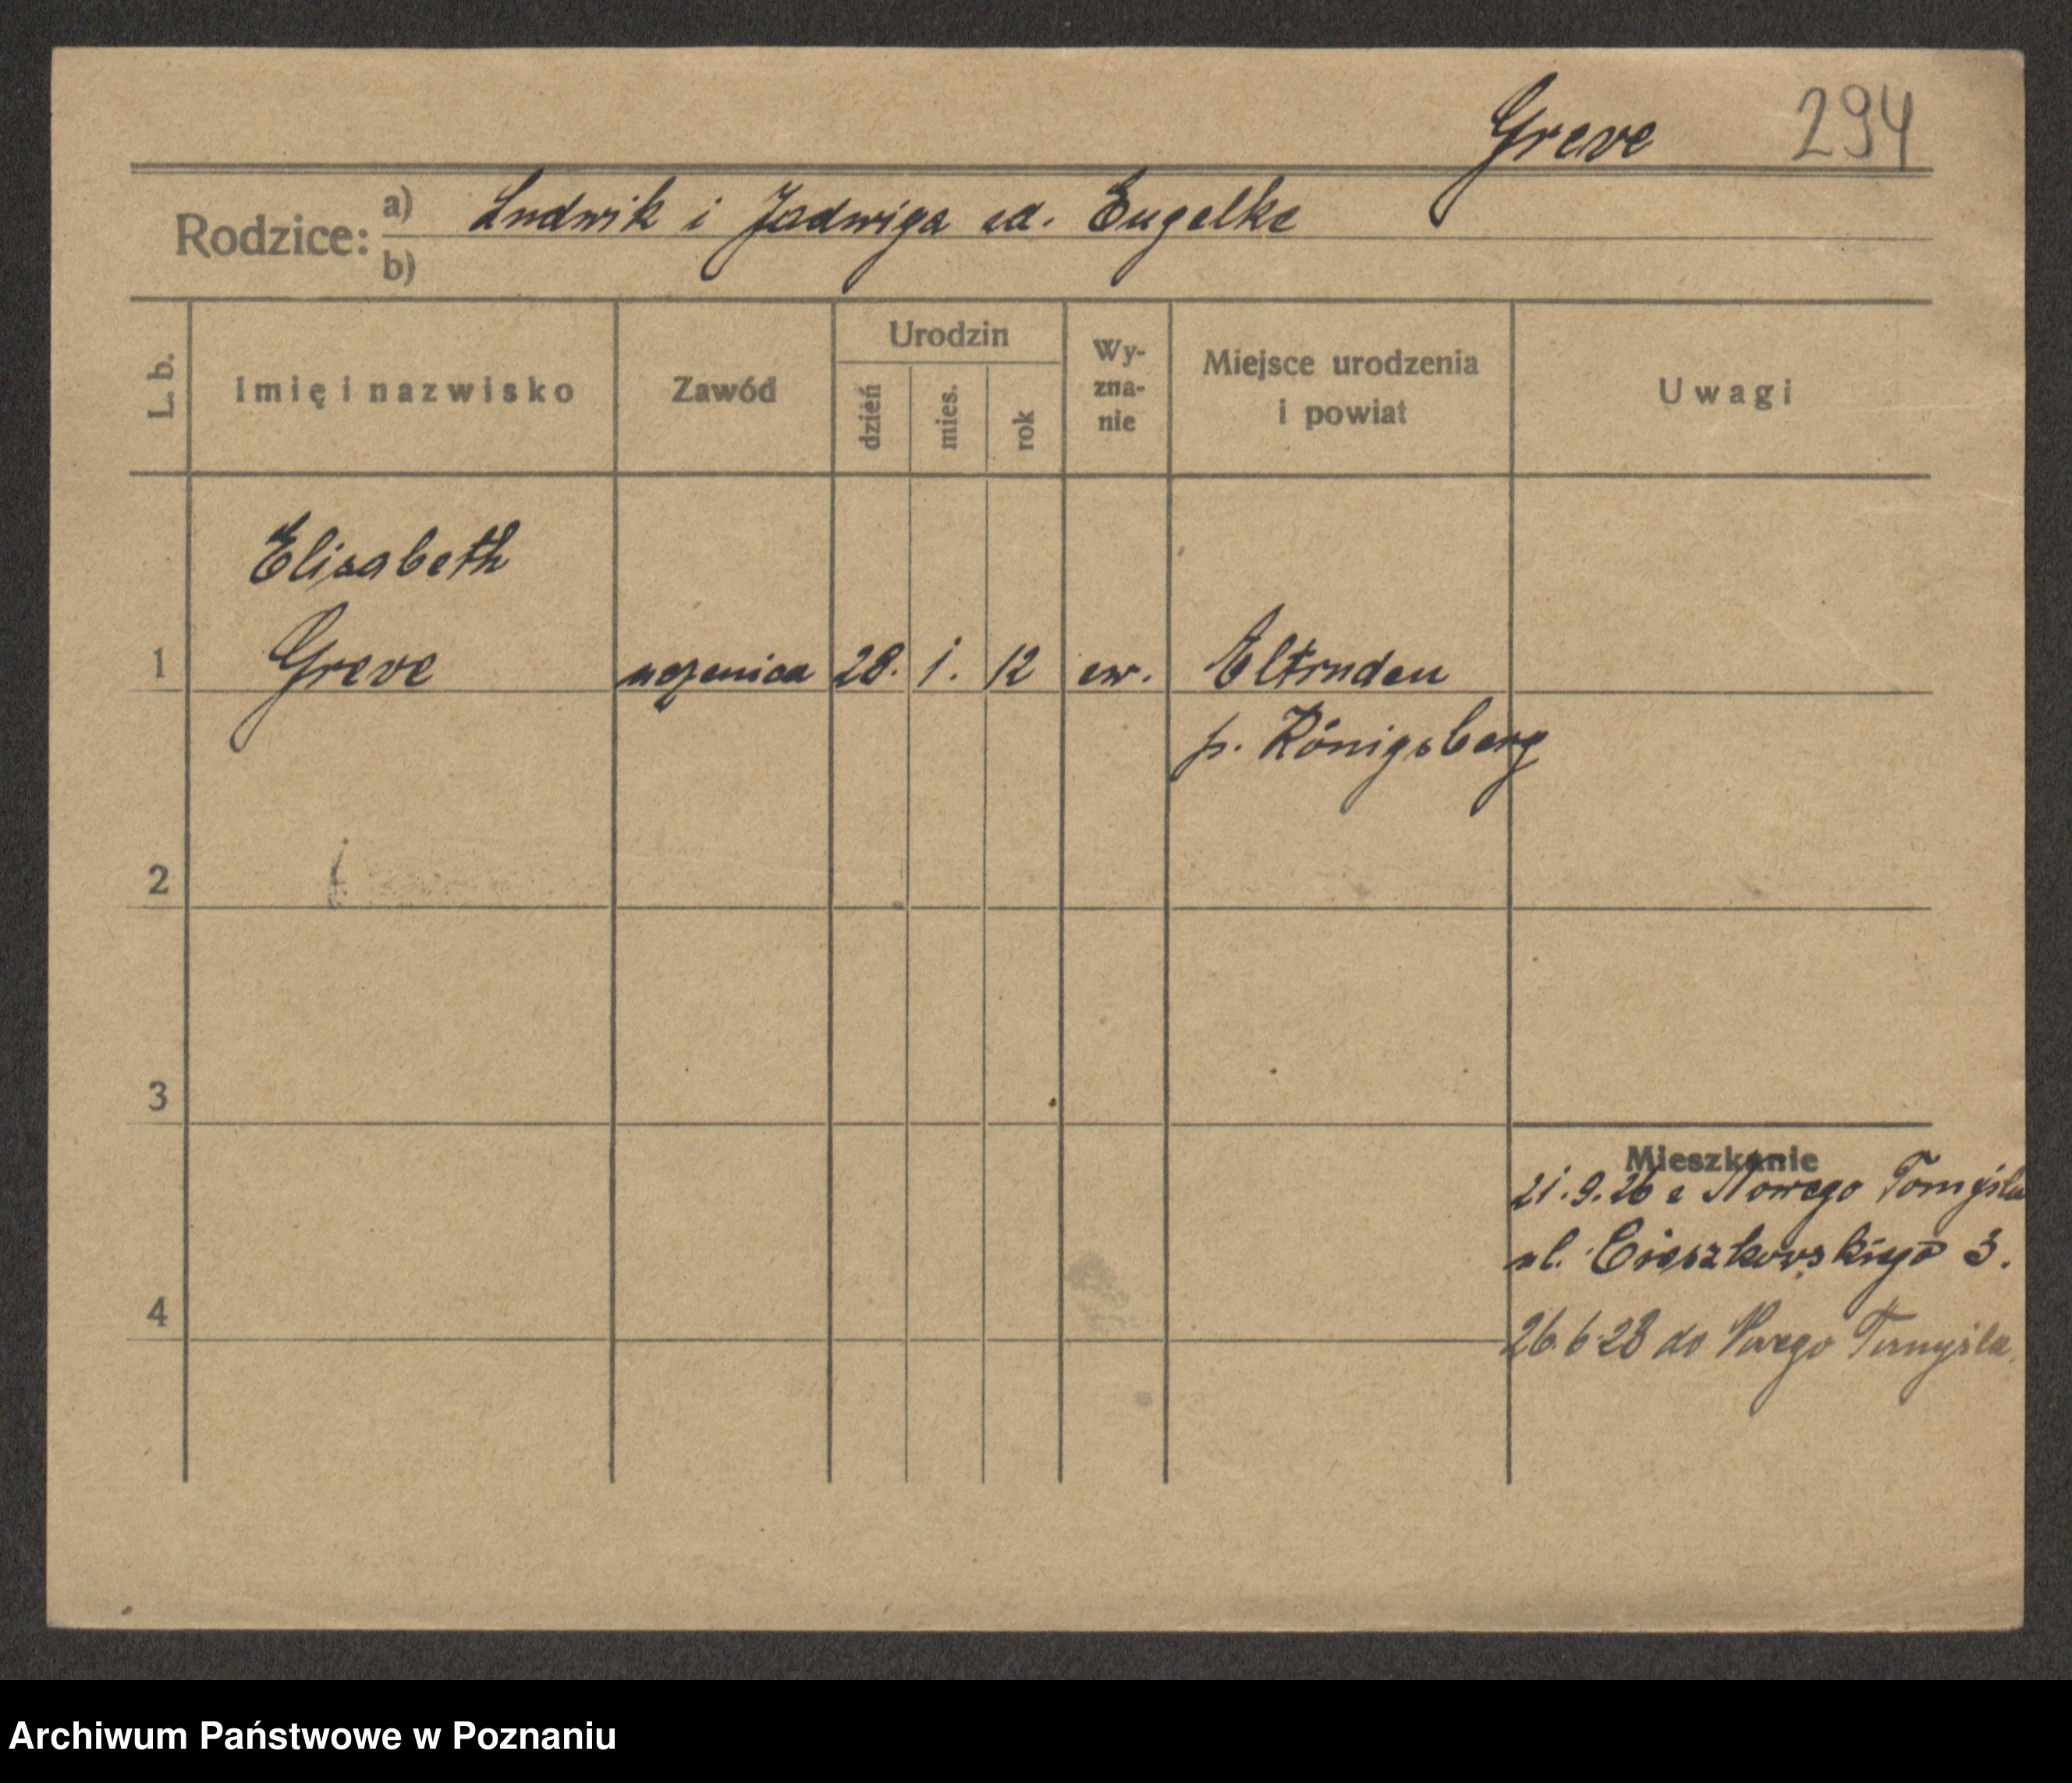 Greve 294
Rodzice: a) Ludwik i Jadwiga zd. Engelke
b)
L. b. Imię i nazwisko Zawód Urodzin dzień mies. rok Wy-zna-nie Miejsce urodzenia i powiat Uwagi
Elisabeth
1 Greve uczenica 28. 1. 12 ew.
p. Königsberg
2
3
Mieszkanie
21.9.26 z Nowego Tomyśla
ul. Cieszkowskiego 3.
4
26.6.28 do Nowego Tomyśla.
Archiwum Państwowe w Poznaniu